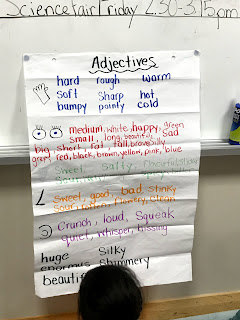 Science Fair Friday 2:30-3:15pm
Adjectives
hard rough warm
soft Sharp hot
bumpy pointy cold
medium, white, happy, green
small, long, beautiful, Sad
big, short, fat, tall, brave, silly
grey, red, black, brown, yellow, pink, blue
Sweet, salty,
Sweet, good, bad stinky
Sour, rotten, flowery, clean
Crunch, loud, Squeak
quiet, whisper, hissing
huge Silky
enormous Shimmery